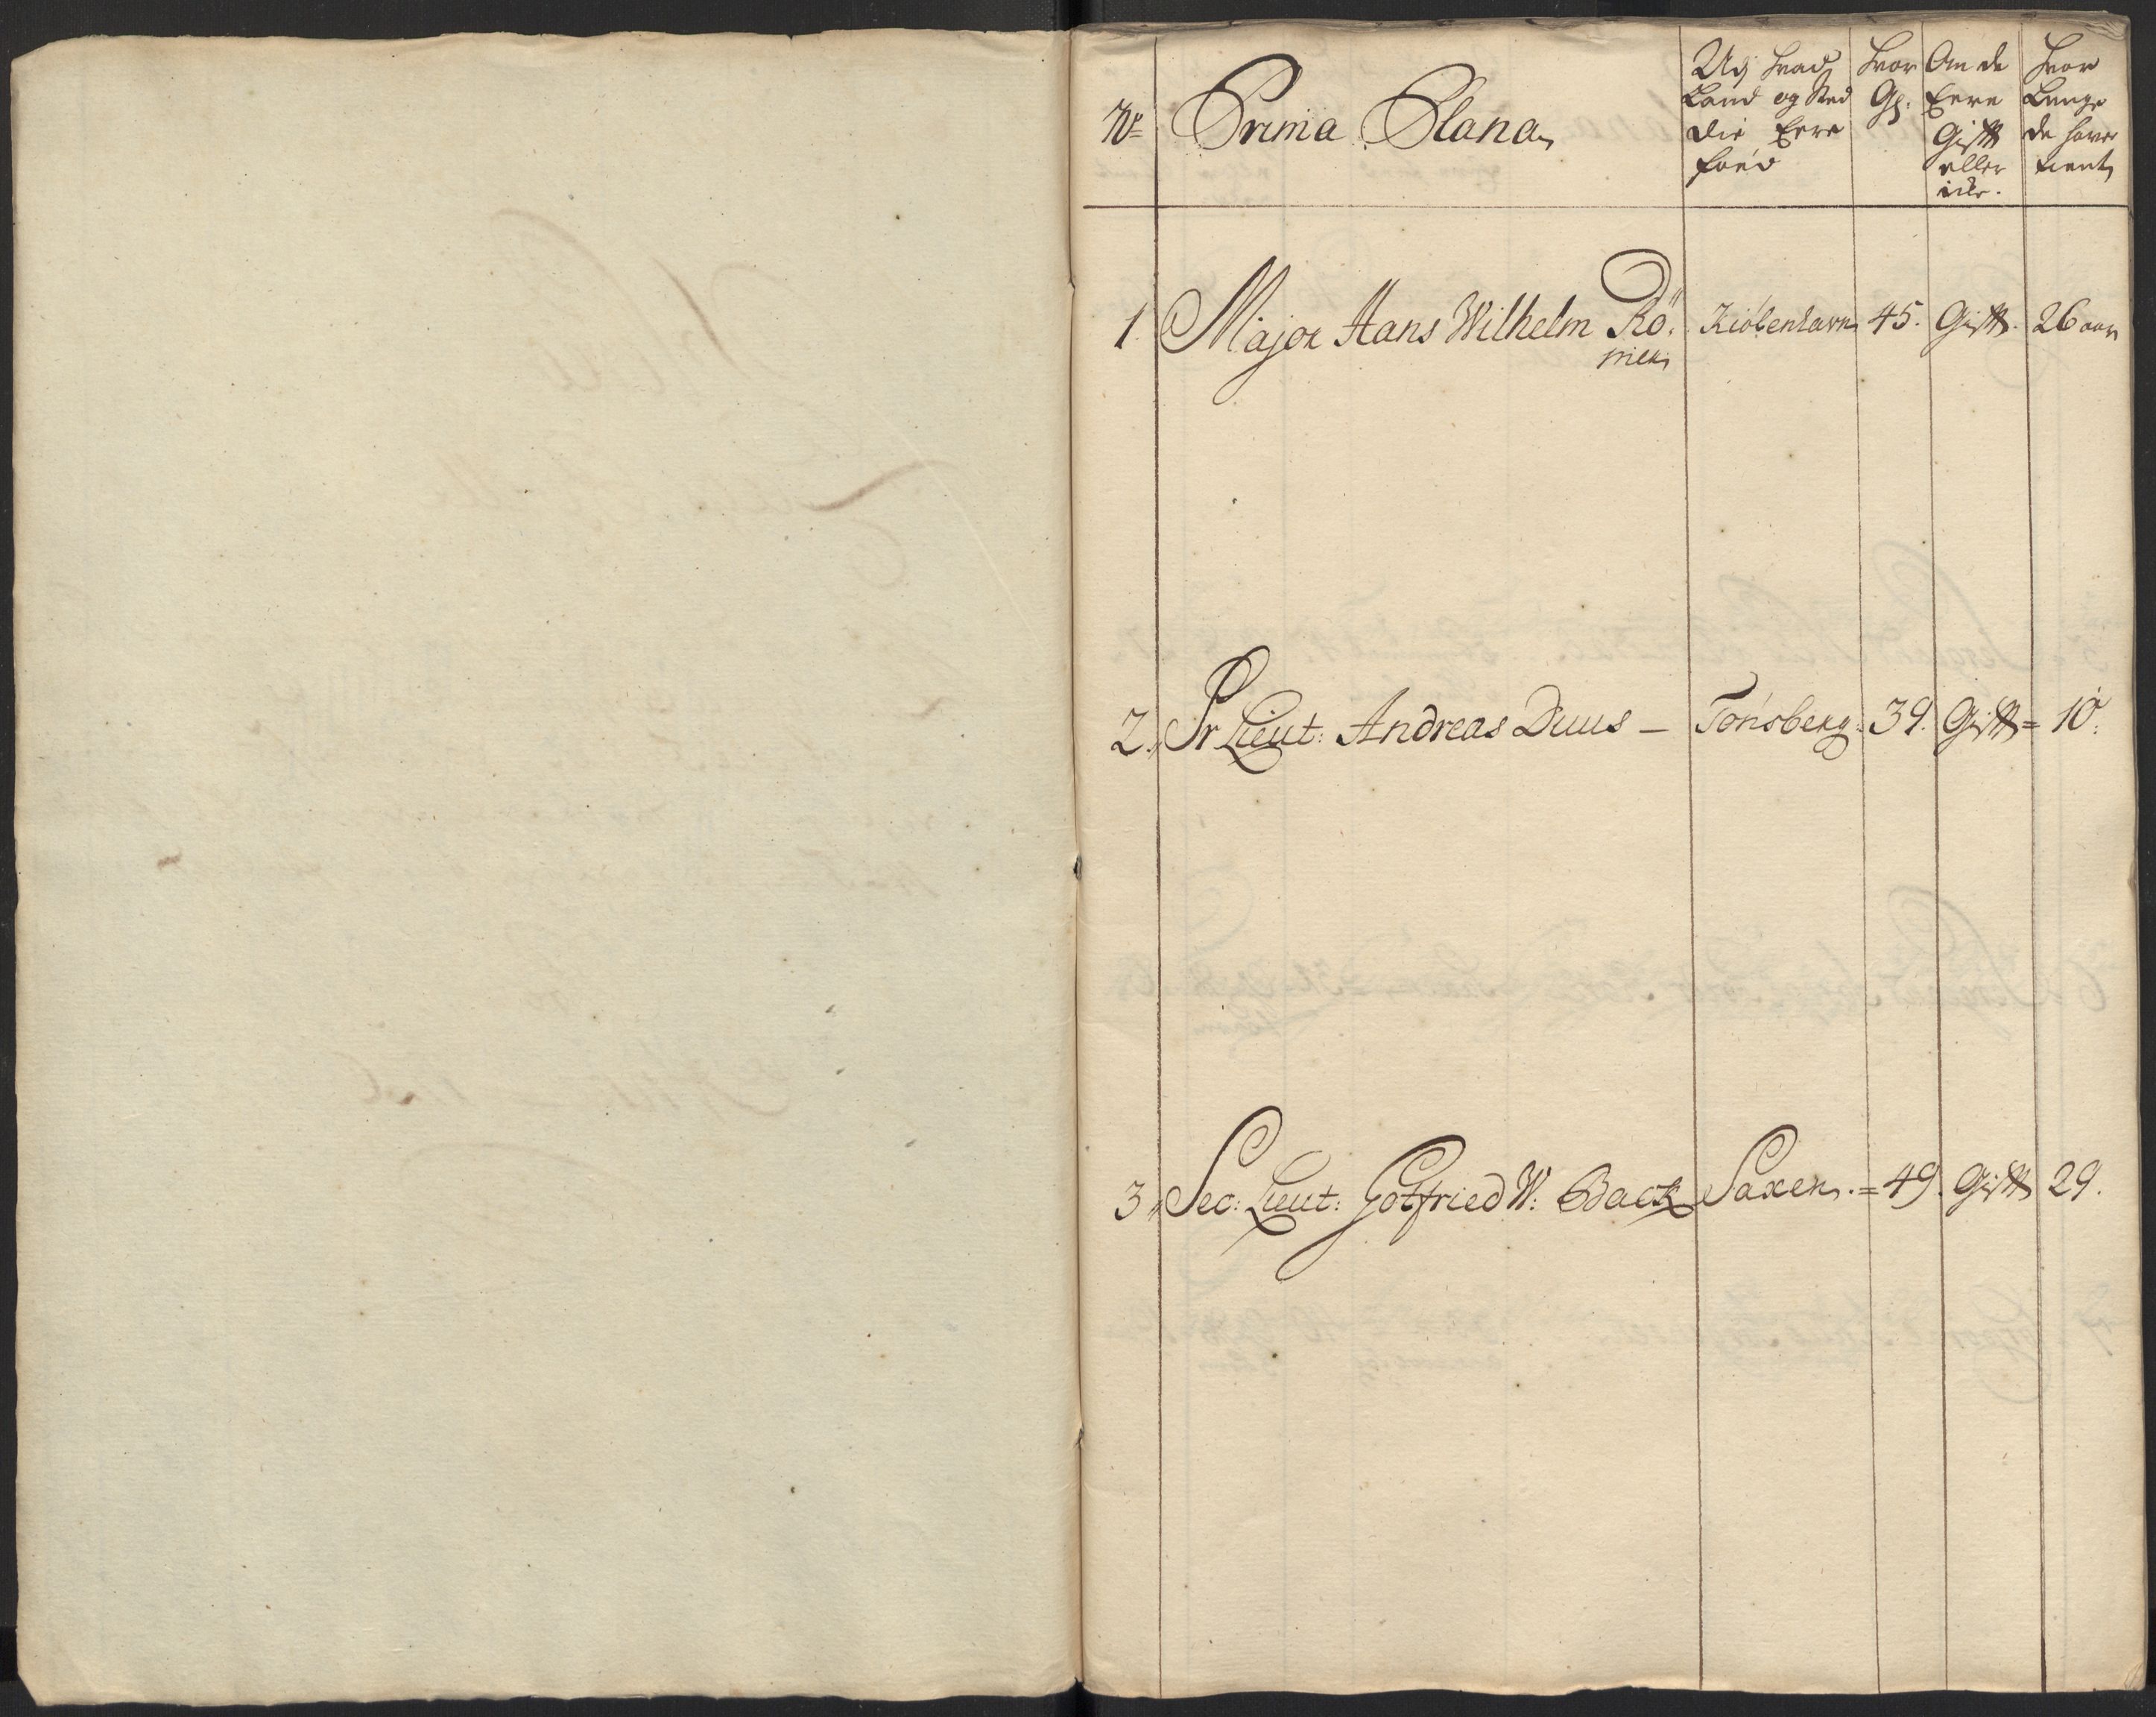 No Prima Plana
Udj hvad Land og Sted die Ere föed
Hvor Gl.
Om de Ere Gift eller icke.
Hvor Lenge de haver tient
1. Major Hans Wilhelm Rö: Kiöbenhavn 45. Gift. 26 aar
mer
2. Pr Lieut: Andreas Duus — Tönsberg. 39. Gift = 10.
3. Sec: Lieut: Gotfried W: Back Saxen. = 49. Gift 29.